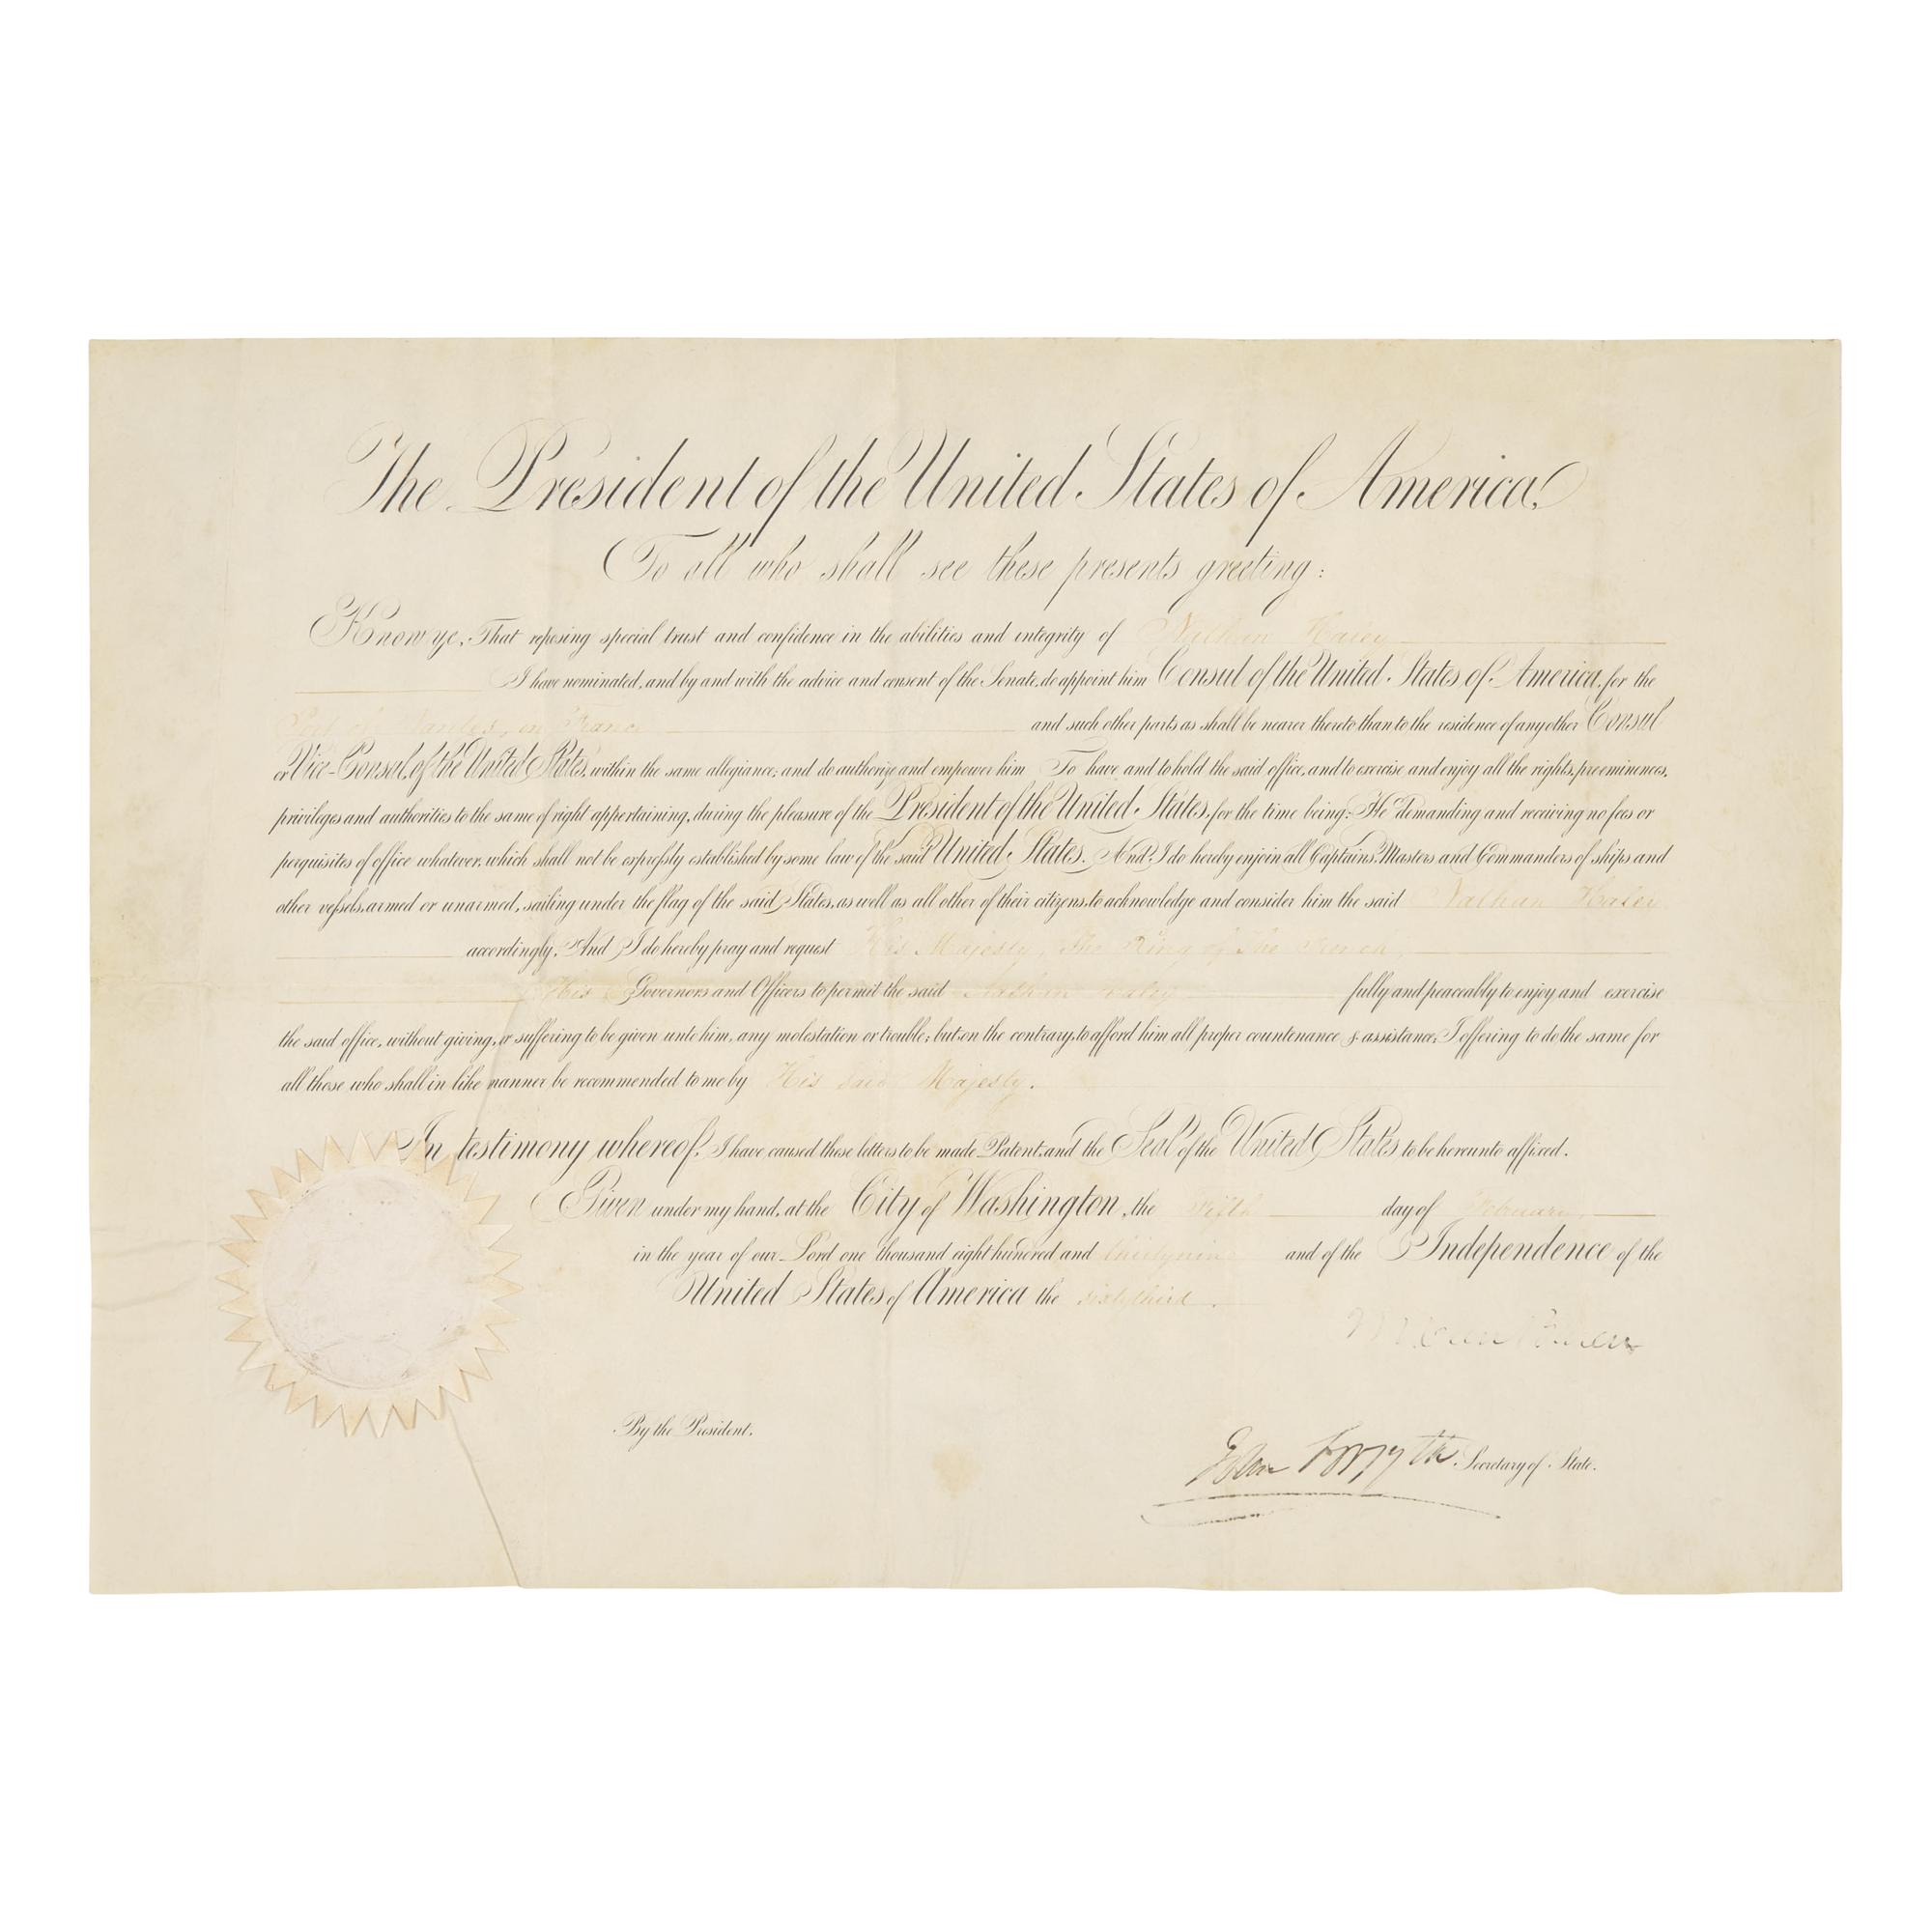 The President of the United States of America,
To all who shall see these presents greeting:
Know ye, That reposing special trust and confidence in the abilities and integrity of Nathan Haley
I have nominated, and by and with the advice and consent of the Senate, do appoint him Consul of the United States of America, for the
Port of Nantes, in France and such other parts as shall be nearer thereto than to the residence of any other Consul
or Vice-Consul of the United States, within the same allegiance; and do authorize and empower him To have and to hold the said office, and to exercise and enjoy all the rights, preeminences,
privileges and authorities to the same of right appertaining, during the pleasure of the President of the United States, for the time being; He demanding and receiving no fees or
perquisites of office whatever, which shall not be expressly established by some law of the said United States. And I do hereby enjoin all Captains, Masters and Commanders of ships and
other vessels, armed or unarmed, sailing under the flag of the said States, as well as all other of their citizens, to acknowledge and consider him the said Nathan Haley
accordingly. And I do hereby pray and request His Majesty, The King of The French,
His Governors and Officers to permit the said Nathan Haley fully and peaceably to enjoy and exercise
the said office, without giving, or suffering to be given unto him, any molestation or trouble; but on the contrary, to afford him all proper countenance & assistance; I offering to do the same for
all those who shall in like manner be recommended to me by His said Majesty.
In testimony whereof, I have caused these letters to be made Patent, and the Seal of the United States to be hereunto affixed.
Given under my hand, at the City of Washington, the Fifth day of February,
in the year of our Lord one thousand eight hundred and thirty nine and of the Independence of the
United States of America the sixty third.
M Van Buren
By the President.
John Forsyth Secretary of State.